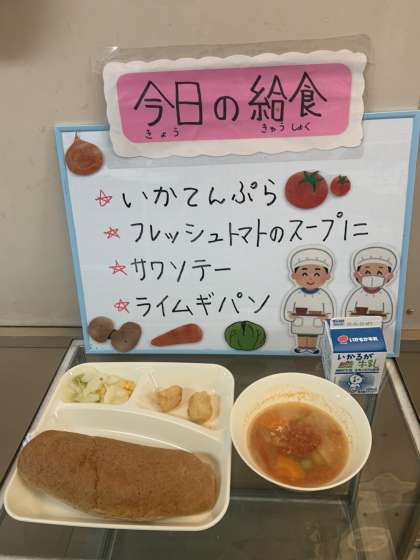 今日の給食
きょう きゅうしょく
☆ いかてんぷら
☆ フレッシュトマトのスープに
☆ サワソテー
☆ ライムギパン
いかるが牛乳
いかるが
牛乳